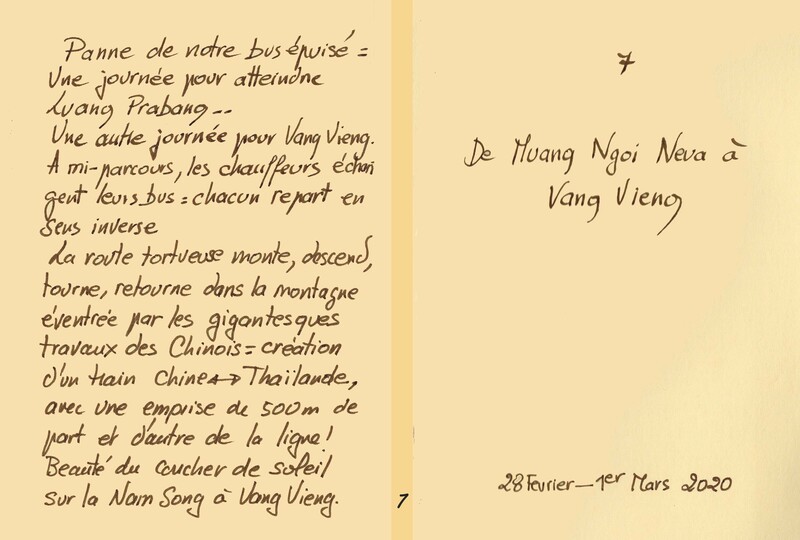 Panne de notre bus épuisé =
Une journée pour atteindre
Luang Prabang --
Une autre journée pour Vang Vieng.
A mi-parcours, les chauffeurs échan
gent leurs bus = chacun repart en
sens inverse
La route tortueuse monte, descend,
tourne, retourne dans la montagne
éventrée par les gigantesques
travaux des Chinois = création
d'un train Chine ↔ Thaïlande,
avec une emprise de 500m de
part et d'autre de la ligne!
Beauté du coucher de soleil
sur la Nam Song à Vang Vieng.
7
7
De Muang Ngoi Neua à
Vang Vieng
28 Février – 1er Mars 2020